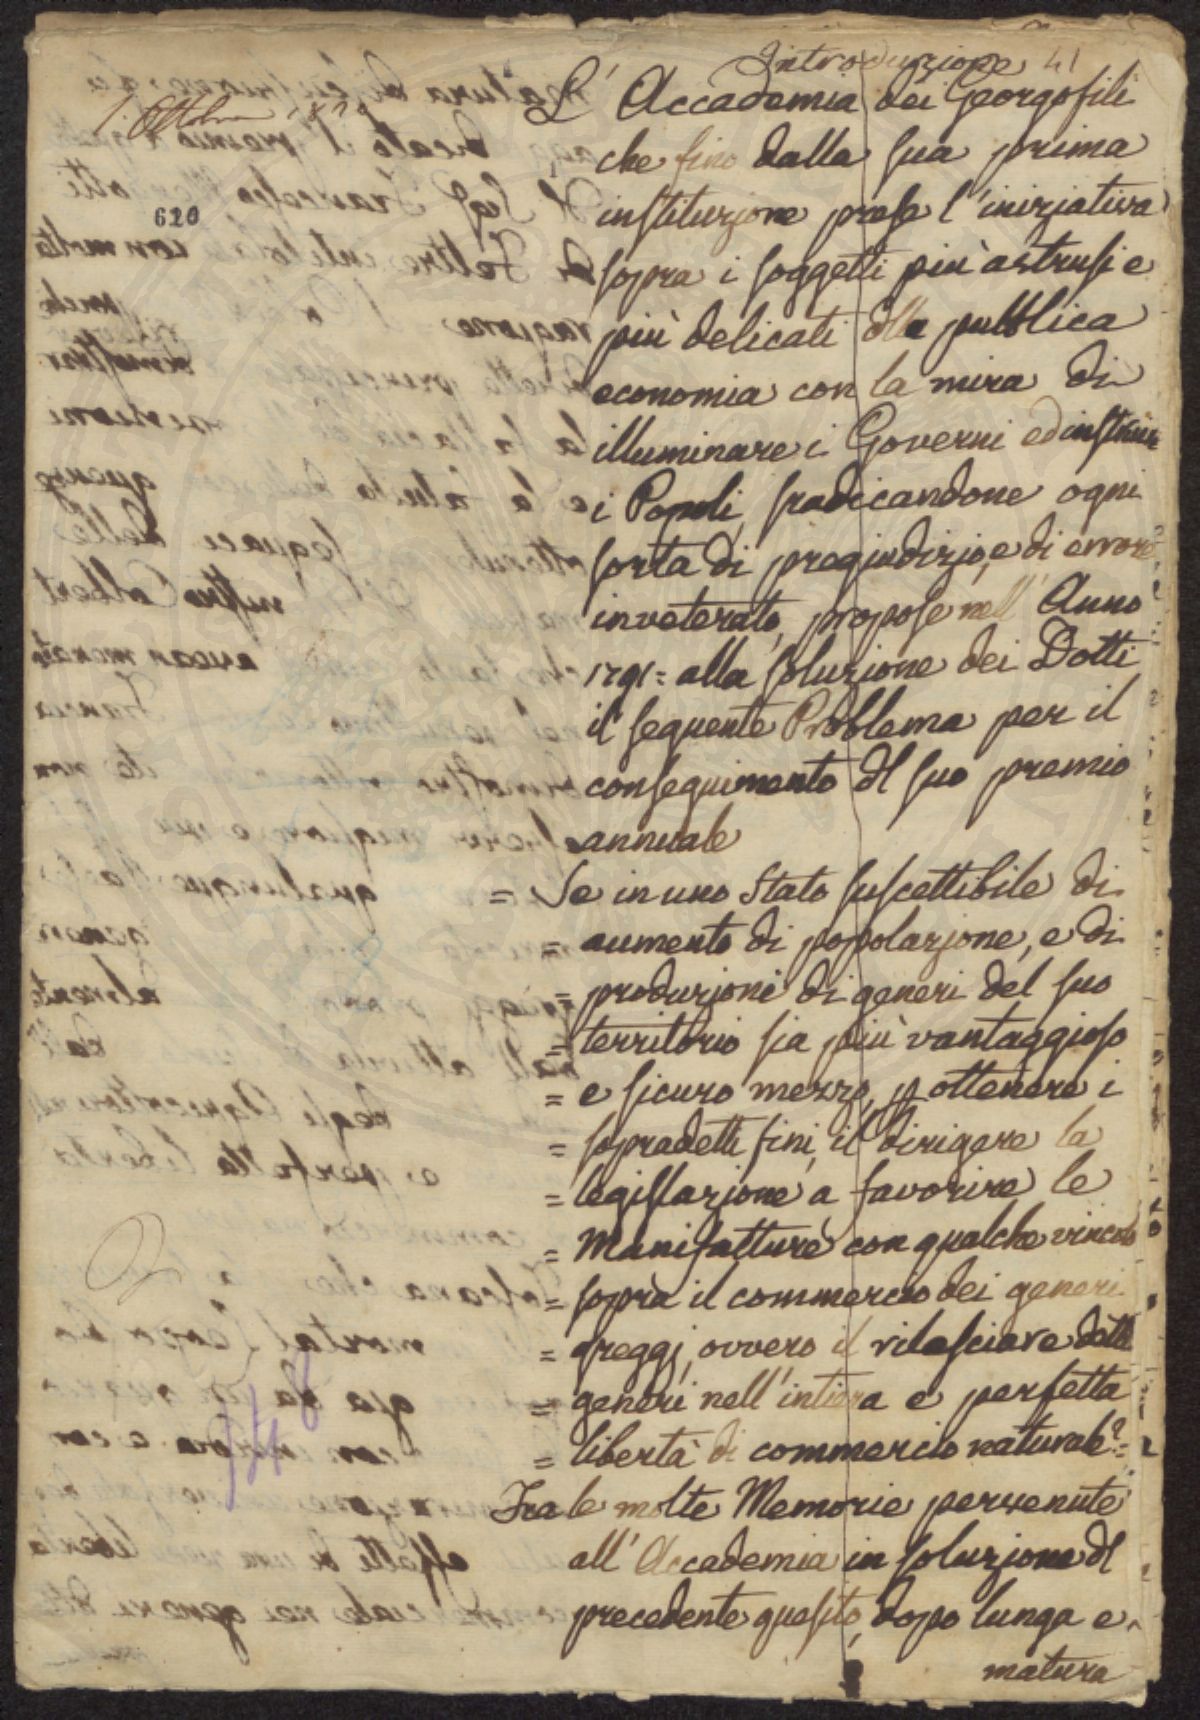 Introduzione 41
1. Ottobre
620
L'Accademia dei Georgofili
che fino dalla sua prima
instituzione prese l'iniziativa
sopra i soggetti più astrusi e
più delicati dlla pubblica
economia con la mira di
illuminare i Governi ed instruire
i Popoli, sradicandone ogni
sorta di pregiudizio, e di errore
inveterato, propose nell'Anno
1791 = alla soluzione dei Dotti
il seguente Problema per il
conseguimento dl suo premio
annuale
= Se in uno Stato suscettibile di
= aumento di popolazione, e di
= produzioni di generi del suo
= territorio sia più vantaggioso
= e sicuro mezzo, p ottenere i
= sopradetti fini, il dirigere la
= legislazione a favorire le
= Manifatture con qualche vincolo
= sopra il commercio dei generi
= greggi, ovvero il rilasciare detti
= generi nell'intiera e perfetta
= libertà di commercio naturale? =
Fra le molte Memorie pervenute
all'Accademia in soluzione dl
precedente quesito, dopo lunga e
matura